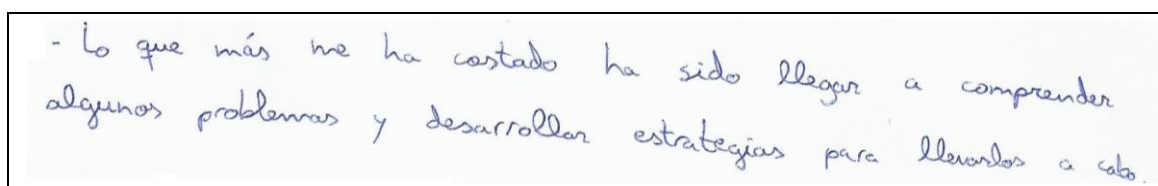 - Lo que más me ha costado ha sido llegar a comprender
algunos problemas y desarrollar estrategias para llevarlos a cabo.